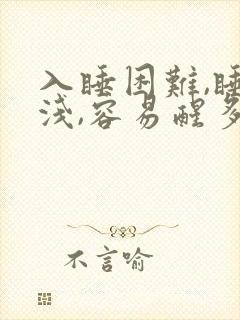 入睡困難,睡
淺,容易醒多
不言喻